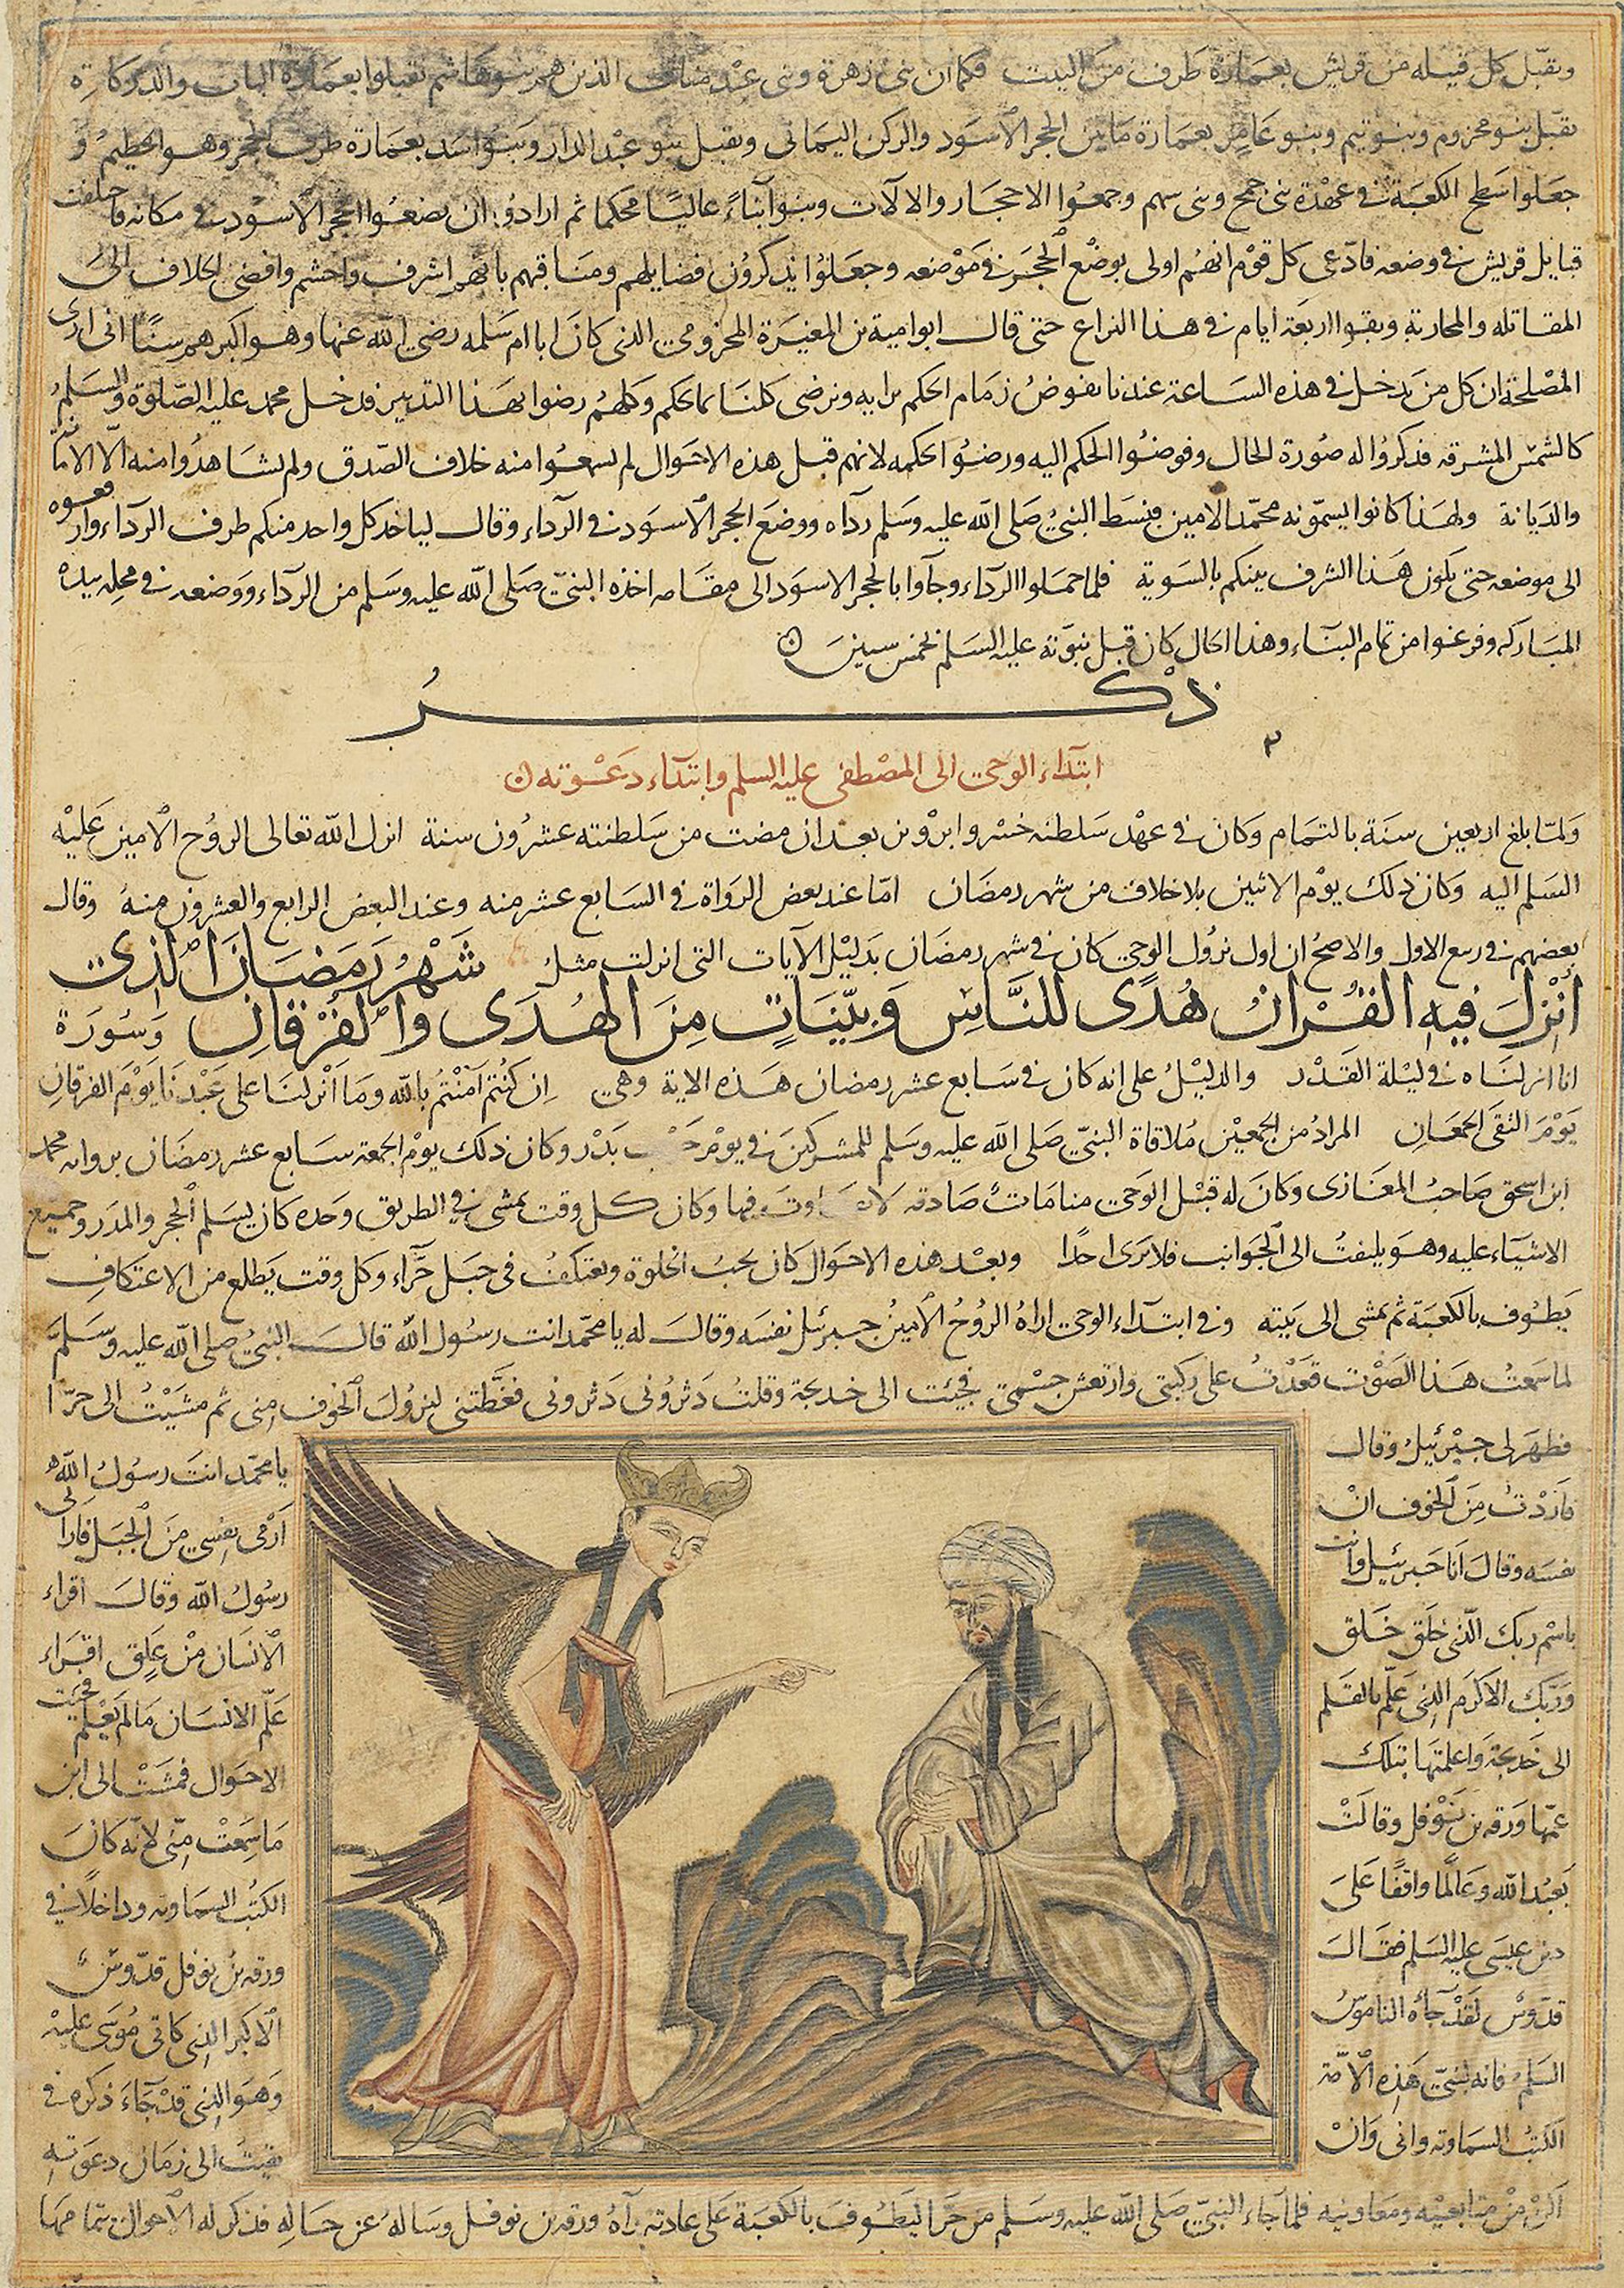 وتقبّل كل قبيله من قريش بعمارة طرف من البيت فكما ان بنى زهرة وبنى عبد مناف الذين هم بنو هاشم تقبلوا بعمارة الباب والذكر
تقبل بنو مخزوم وبنو تيم وبنو عامر بعمارة ما بين الحجر الاسود والركن اليمانى وتقبل بنو عبد الدار وبنو اسد بعمارة طرف الحجر وهو الحطيم و
جعلوا سطح الكعبة فى عهدة بنى جمح وبنى سهم وجمعوا الاحجار والالات وبنوا بناءً عاليًا محكما ثم ارادوا ان يضعوا الحجر الاسود فى مكانه فاختلفت
قبايل قريش فى وضعه فادّعى كل قوم انهم اولى بوضع الحجر فى موضعه وجعلوا يذكرون فضايلهم ومناقبهم بانهم اشرف واحشم وافضى الخلاف الى
المقاتله والمحاربة وبقوا اربعة ايام فى هذا النزاع حتى قال ابو امية بن المغيرة المخزومى الذى كان ابا ام سلمه رضى الله عنها وهو اكبرهم سنًا انى ارى
المصلحة ان كل من يدخل فى هذه الساعة عندنا نفوض زمام الحكم برايه ونرضى كلنا بما يحكم وكلهم رضوا بهذا التدبير فدخل محمد عليه الصلوة والسلم
كالشمس المشرقه فذكروا له صورة الحال وفوضوا الحكم اليه ورضوا بحكمه لانهم قبل هذه الاحوال لم يسمعوا منه خلاف الصدق ولم يشاهدوا منه الّا الامانة
والديانة ولهذا كانوا يسمّونه محمّد الامين فبسط النبى صلى الله عليه وسلم رداه ووضع الحجر الاسود فى الرداء وقال لياخذ كل واحد منكم طرف الرداء وارفعوه
الى موضعه حتى يكون هذا الشرف بينكم بالسوية فلما حملوا الرداء وجاوا بالحجر الاسود الى مقامه اخذه النبىّ صلى الله عليه وسلم من الرداء ووضعه فى محله بيده
المباركه وفرغوا من تمام البناء وهذا الحال كان قبل نبوّته عليه السلم بخمس سنين
ذكر
ابتداء الوحى الى المصطفى عليه السلم وابتداء دعوته
ولمّا بلغ اربعين سنة بالتمام وكان فى عهد سلطنه خسرو ابرويز بعد ان مضت من سلطنته عشرون سنة انزل الله تعالى الروح الامين عليه
السلم اليه وكان ذلك يوم الاثنين بلا خلاف من شهر رمضان امّا عند بعض الرواة فى السابع عشر منه وعند البعض الرابع والعشرون منه وقال
بعضهم فى ربيع الاول والاصح ان اول نزول الوحى كان فى شهر رمضان بدليل الآيات التى انزلت مثل شَهْرُ رَمَضَانَ الَّذِى
أُنْزِلَ فِيهِ القُرْانُ هُدًى لِلنَّاسِ وَبَيِّنَاتٍ مِنَ الهُدَى وَالفُرْقَانِ وسورة
انا انزلناه فى ليلة القدر والدليل على انه كان فى سابع عشر رمضان هذه الاية وهى ان كنتم آمنتم بالله وما انزلنا على عبدنا يوم الفرقان
يوم التقى الجمعان المراد من الجمعين ملاقاة النبىّ صلى الله عليه وسلم للمشركين فى يوم بدر وكان ذلك يوم الجمعة سابع عشر رمضان برواية محمد
ابن اسحق صاحب المغازى وكان له قبل الوحى منامات صادقه فيها وكان كل وقت يمشى فى الطريق وحده كان يسلم الحجر والمدر وجميع
الاشياء عليه وهو يلتفت الى الجوانب فلا يرى احدًا وبعد هذه الاحوال كان يحب الخلوة ويعتكف فى جبل حرّاء وكل وقت يطلع من الاعتكاف
يطوف بالكعبة ثم يمشى الى بيته وفى ابتداء الوحى اراه الروح الامين جبرئيل نفسه وقال له يا محمّد انت رسول الله قال النبى صلى الله عليه وسلم
لما سمعت هذا الصوت قعدت على ركبتى وارتعش جسمى فجيت الى خديجة وقلت دثرونى دثرونى فغطّتنى لنزول الخوف منى ثم مشيت الى حرّا
فظهر لى جبرئيل وقال يا محمّد انت رسول الله
فاردت من الخوف ان ارمى نفسى من الجبل فارانى
نفسه وقال انا جبرئيل وانت رسول الله وقال اقراء
باسم ربك الّذى خلق خلق الانسان من علق اقراء
وربّك الاكرم الذى علّم بالقلم علّم الانسان مالم يعلم فجيت
الى خديجة واعلمتها بتلك الاحوال فمشت الى ابن
عمّها ورقه بن نوفل وقالت ما سمعت منّى لانّه كان
يعبد الله وعالمًا واقفًا على الكتب السماوية وداخلًا فى
دين عيسى عليه السلم فقال ورقه بن نوفل قدّوس
قدّوس لقد جاه الناموس الاكبر الذى كان ياتى موسى عليه
السلم فانه نبىّ هذه الامّة وهو الذى قد جآء ذكره فى
الكتب السماويه وانى وان بقيت الى زمان دعوته
اكن من متابعيه ومعاونيه فلما جاء النبى صلى الله عليه وسلم من حرّا ليطوف بالكعبة على عادته رآه ورقه بن نوفل وساله عن حاله فذكر له الاحوال بتمامها